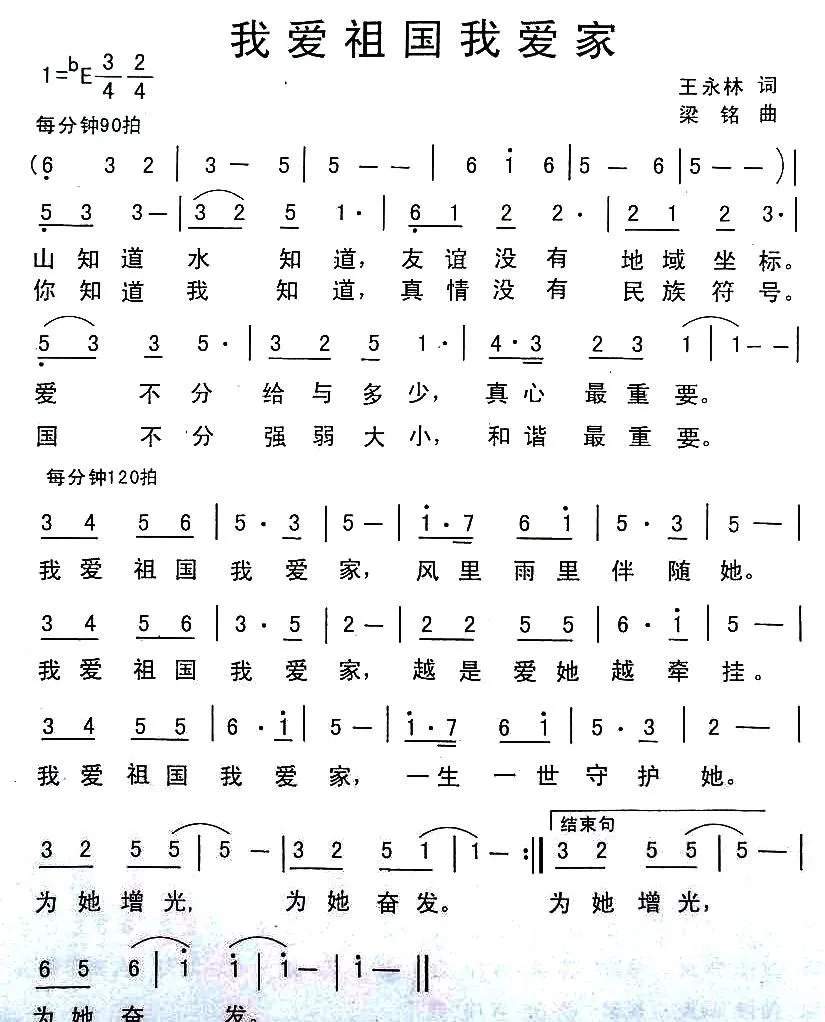 我爱祖国我爱家
1=♭E 3/4 2/4
王永林 词
梁铭 曲
每分钟90拍
(6̣ 3 2 | 3 — 5 | 5 — — | 6 i 6 | 5 — 6 | 5 — — ) |
5̣ 3 3 — | 3 2 5 1 · | 6̣ 1 2 2 · | 2 1 2 3 · |
山知道 水 知道, 友谊没有 地域坐标。
你知道 我 知道, 真情没有 民族符号。
5̣ 3 3 5 · | 3 2 5 1 · | 4 · 3 2 3 1 | 1 — — |
爱 不分 给与多少, 真心最重要。
国 不分 强弱大小, 和谐最重要。
每分钟120拍
3 4 5 6 | 5 · 3 | 5 — | i · 7 6 i | 5 · 3 | 5 — |
我爱祖国我爱家, 风里雨里伴随她。
3 4 5 6 | 3 · 5 | 2 — | 2 2 5 5 | 6 · i | 5 — |
我爱祖国我爱家, 越是爱她越牵挂。
3 4 5 5 | 6 · i | 5 — | i · 7 6 i | 5 · 3 | 2 — |
我爱祖国我爱家, 一生一世守护她。
结束句
3 2 5 5 | 5 — | 3 2 5 1 | 1 — :‖ 3 2 5 5 | 5 — |
为她增光, 为她奋发。 为她增光,
6 5 6 i | i | i — | i — ‖
为她奋 发。